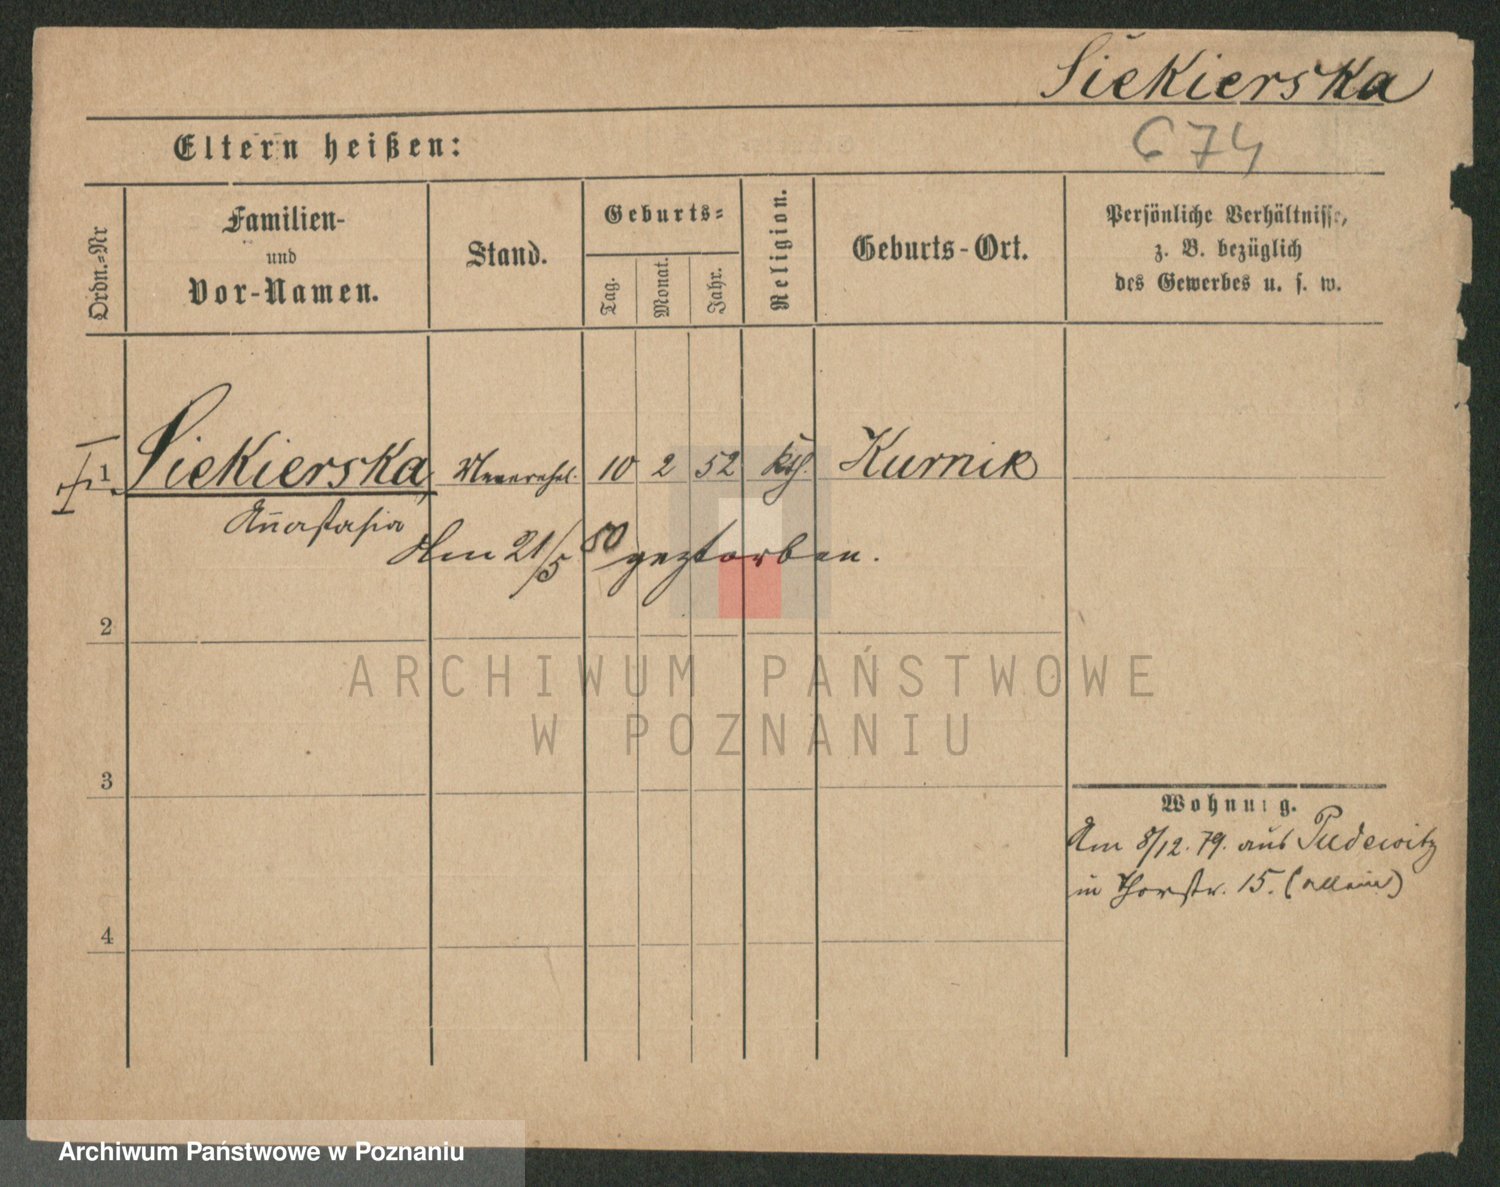 Siekierska
674
Eltern heißen:
Ordn.=Nr
Familien-
und
Vor-Namen.
Stand.
Geburts=
Tag.
Monat.
Jahr.
Religion.
Geburts-Ort.
Persönliche Verhältnisse,
z. B. bezüglich
des Gewerbes u. s. w.
1 Siekierska, Unverehel. 10 2 52 kth. Kurnik
Anastasia
Am 21/5 80 gestorben.
2
ARCHIWUM PAŃSTWOWE
W POZNANIU
3
Wohnung.
Am 8/12. 79. aus Pudewitz
in Thorstr. 15. (allein)
4
Archiwum Państwowe w Poznaniu